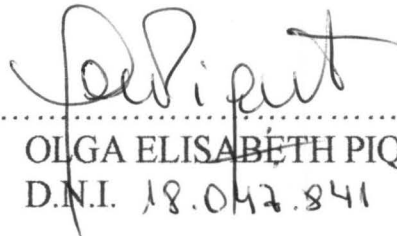 OLGA ELISABETH PIQ
D.N.I. 18.047.841